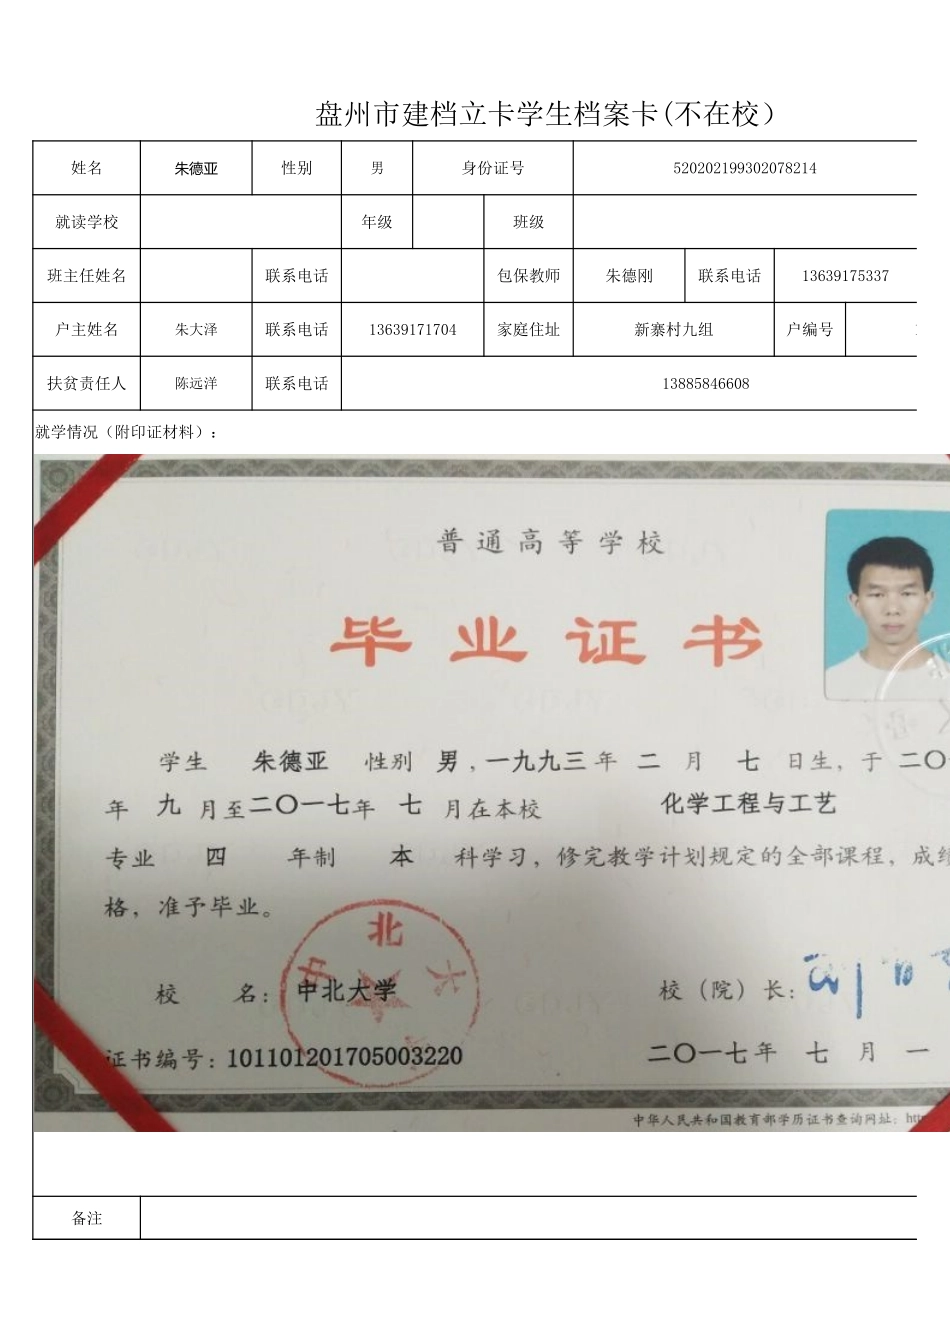 盘州市建档立卡学生档案卡(不在校）
姓名 朱德亚 性别 男 身份证号 520202199302078214
就读学校 年级 班级
班主任姓名 联系电话 包保教师 朱德刚 联系电话 13639175337
户主姓名 朱大泽 联系电话 13639171704 家庭住址 新寨村九组 户编号
扶贫责任人 陈远洋 联系电话 13885846608
就学情况（附印证材料）：
普通高等学校
毕业证书
学生 朱德亚 性别 男，一九九三年 二 月 七 日生，于 二〇
年 九 月至二〇一七年 七 月在本校 化学工程与工艺
专业 四 年制 本 科学习，修完教学计划规定的全部课程，成绩
格，准予毕业。
校 名：中北大学 校（院）长：
证书编号：101101201705003220 二〇一七年 七 月 一
中华人民共和国教育部学历证书查询网址：htt
备注